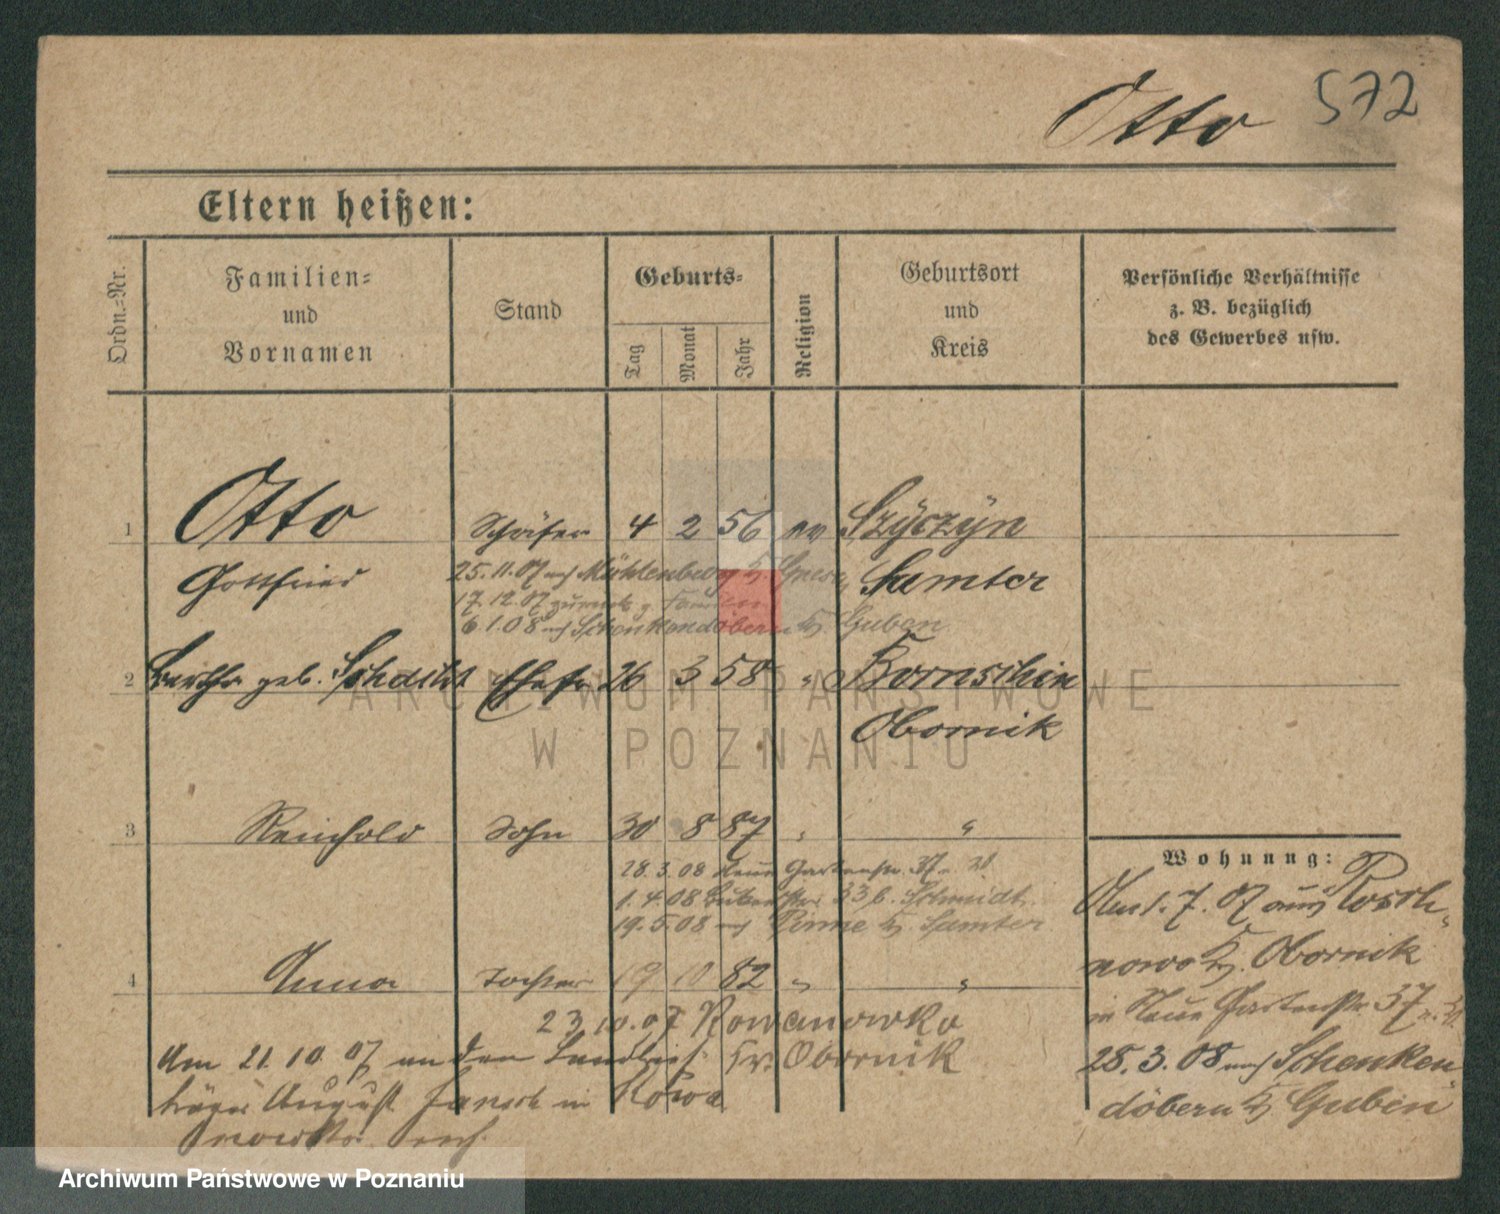 Otto 572
Eltern heißen:
Ordn.-Nr.
Familien-
und
Vornamen
Stand
Geburts-
Tag
Monat
Jahr
Religion
Geburtsort
und
Kreis
Persönliche Verhältnisse
z. B. bezüglich
des Gewerbes usw.
1 Otto Schäfer 4 2 56 ev Szyczyn
Gottfried Samter
25.11.07 nach Mühlenberg K.
17.12.07 zurück z.
6.1.08 nach Schenkendöbern K. Guben
2 Bertha geb. Schacht Ehefr 26 3 58 " Bornschin
Obornik
3 Reinhold Sohn 30 8 87 " "
28.3.08 Neue Gartenstr. 37
1.4.08 33 b. Schmidt
19.5.08 nach Pinne K. Samter
4 Anna Tochter 19 10 82 " "
23.10.07 Rowanowko
Kr. Obornik
Am 21.10.07 an den Landbrief-
träger August Jansch in Rowa
nowko verh.
Wohnung:
Am 1.7.07 aus
nowo K. Obornik
in Neue Gartenstr 37
28.3.08 nach Schenken
döbern K. Guben
ARCHIWUM PAŃSTWOWE
W POZNANIU
Archiwum Państwowe w Poznaniu